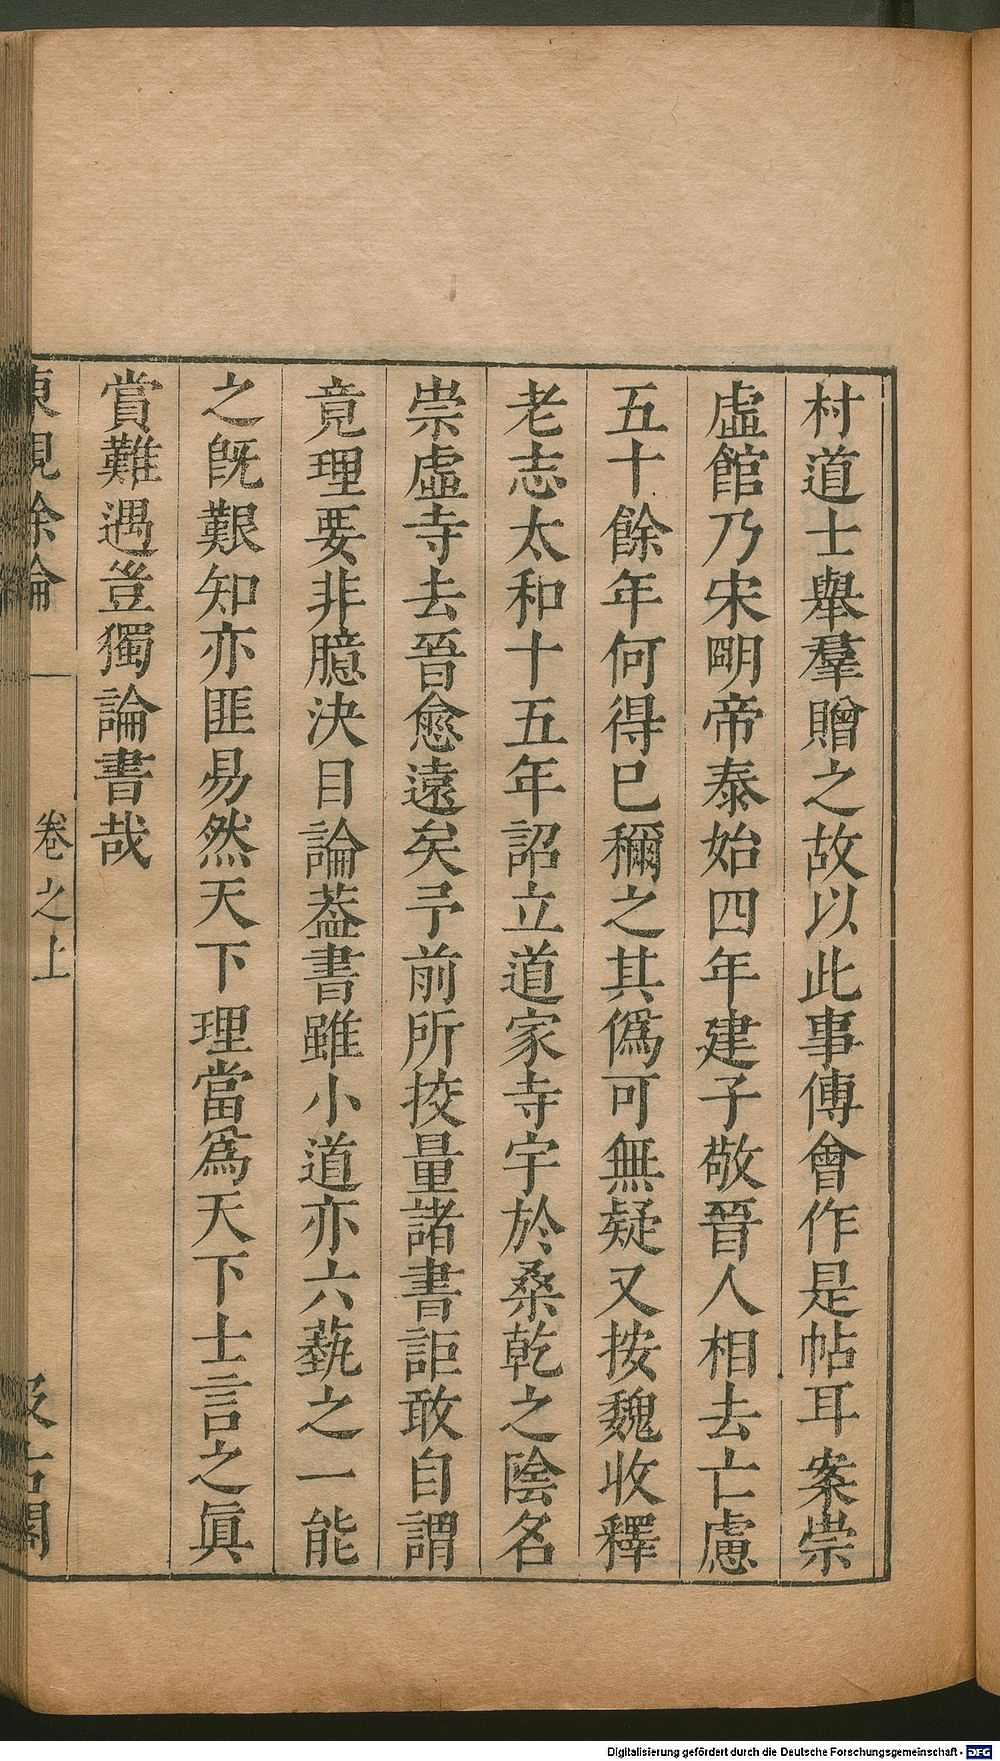 村道士舉羣贈之故以此事傅會作是帖耳案崇
虛館乃宋明帝泰始四年建子敬晉人相去亡慮
五十餘年何得已稱之其僞可無疑又按魏收釋
老志太和十五年詔立道家寺宇於桑乾之陰名
崇虛寺去晉愈遠矣予前所挍量諸書詎敢自謂
竟理要非臆決目論葢書雖小道亦六藝之一能
之旣艱知亦匪易然天下理當爲天下士言之眞
賞難遇豈獨論書哉
東觀餘論
卷之上
汲古閣
Digitalisierung gefördert durch die Deutsche Forschungsgemeinschaft - DFG